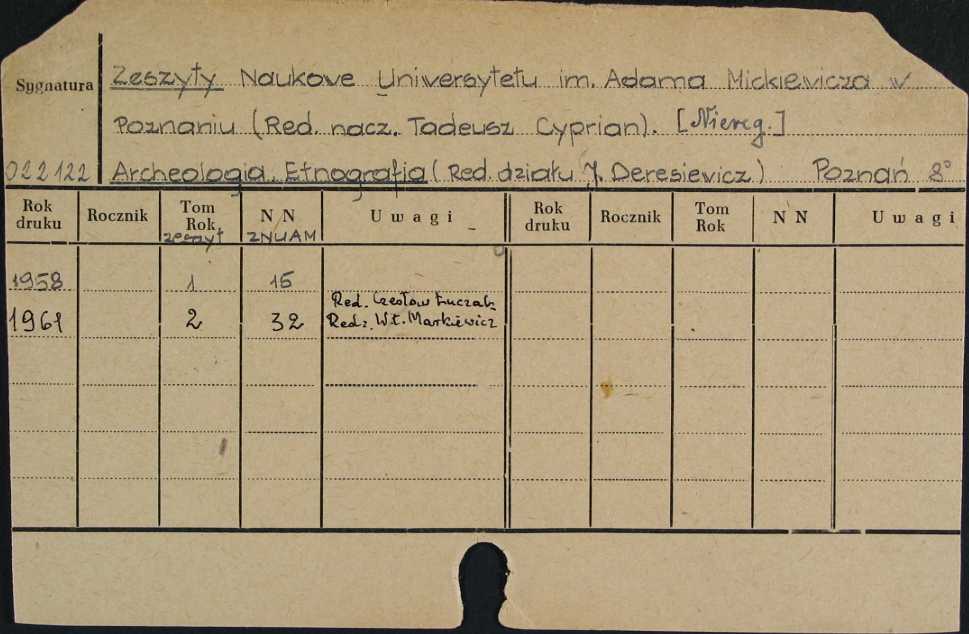 Sygnatura Zeszyty Naukowe Uniwersytetu im. Adama Mickiewicza w
Poznaniu (Red. nacz. Tadeusz Cyprian). [Niereg.]
022122 Archeologia. Etnografia (Red. działu J. Deresiewicz) Poznań 8°
Rok druku Rocznik Tom Rok zeszyt NN ZNUAM Uwagi Rok druku Rocznik Tom Rok NN Uwagi
1958 1 15
Red. Czesław Łuczak
1961 2 32 Red. Wł. Markiewicz